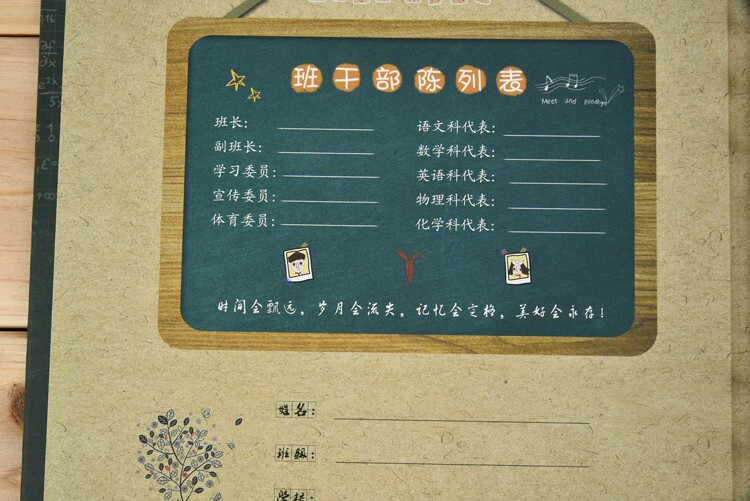 班干部陈列表
Meet and goodbye
班长：
副班长：
学习委员：
宣传委员：
体育委员：
语文科代表：
数学科代表：
英语科代表：
物理科代表：
化学科代表：
时间会飘远，岁月会流失，记忆会定格，美好会永存！
姓名：
班级：